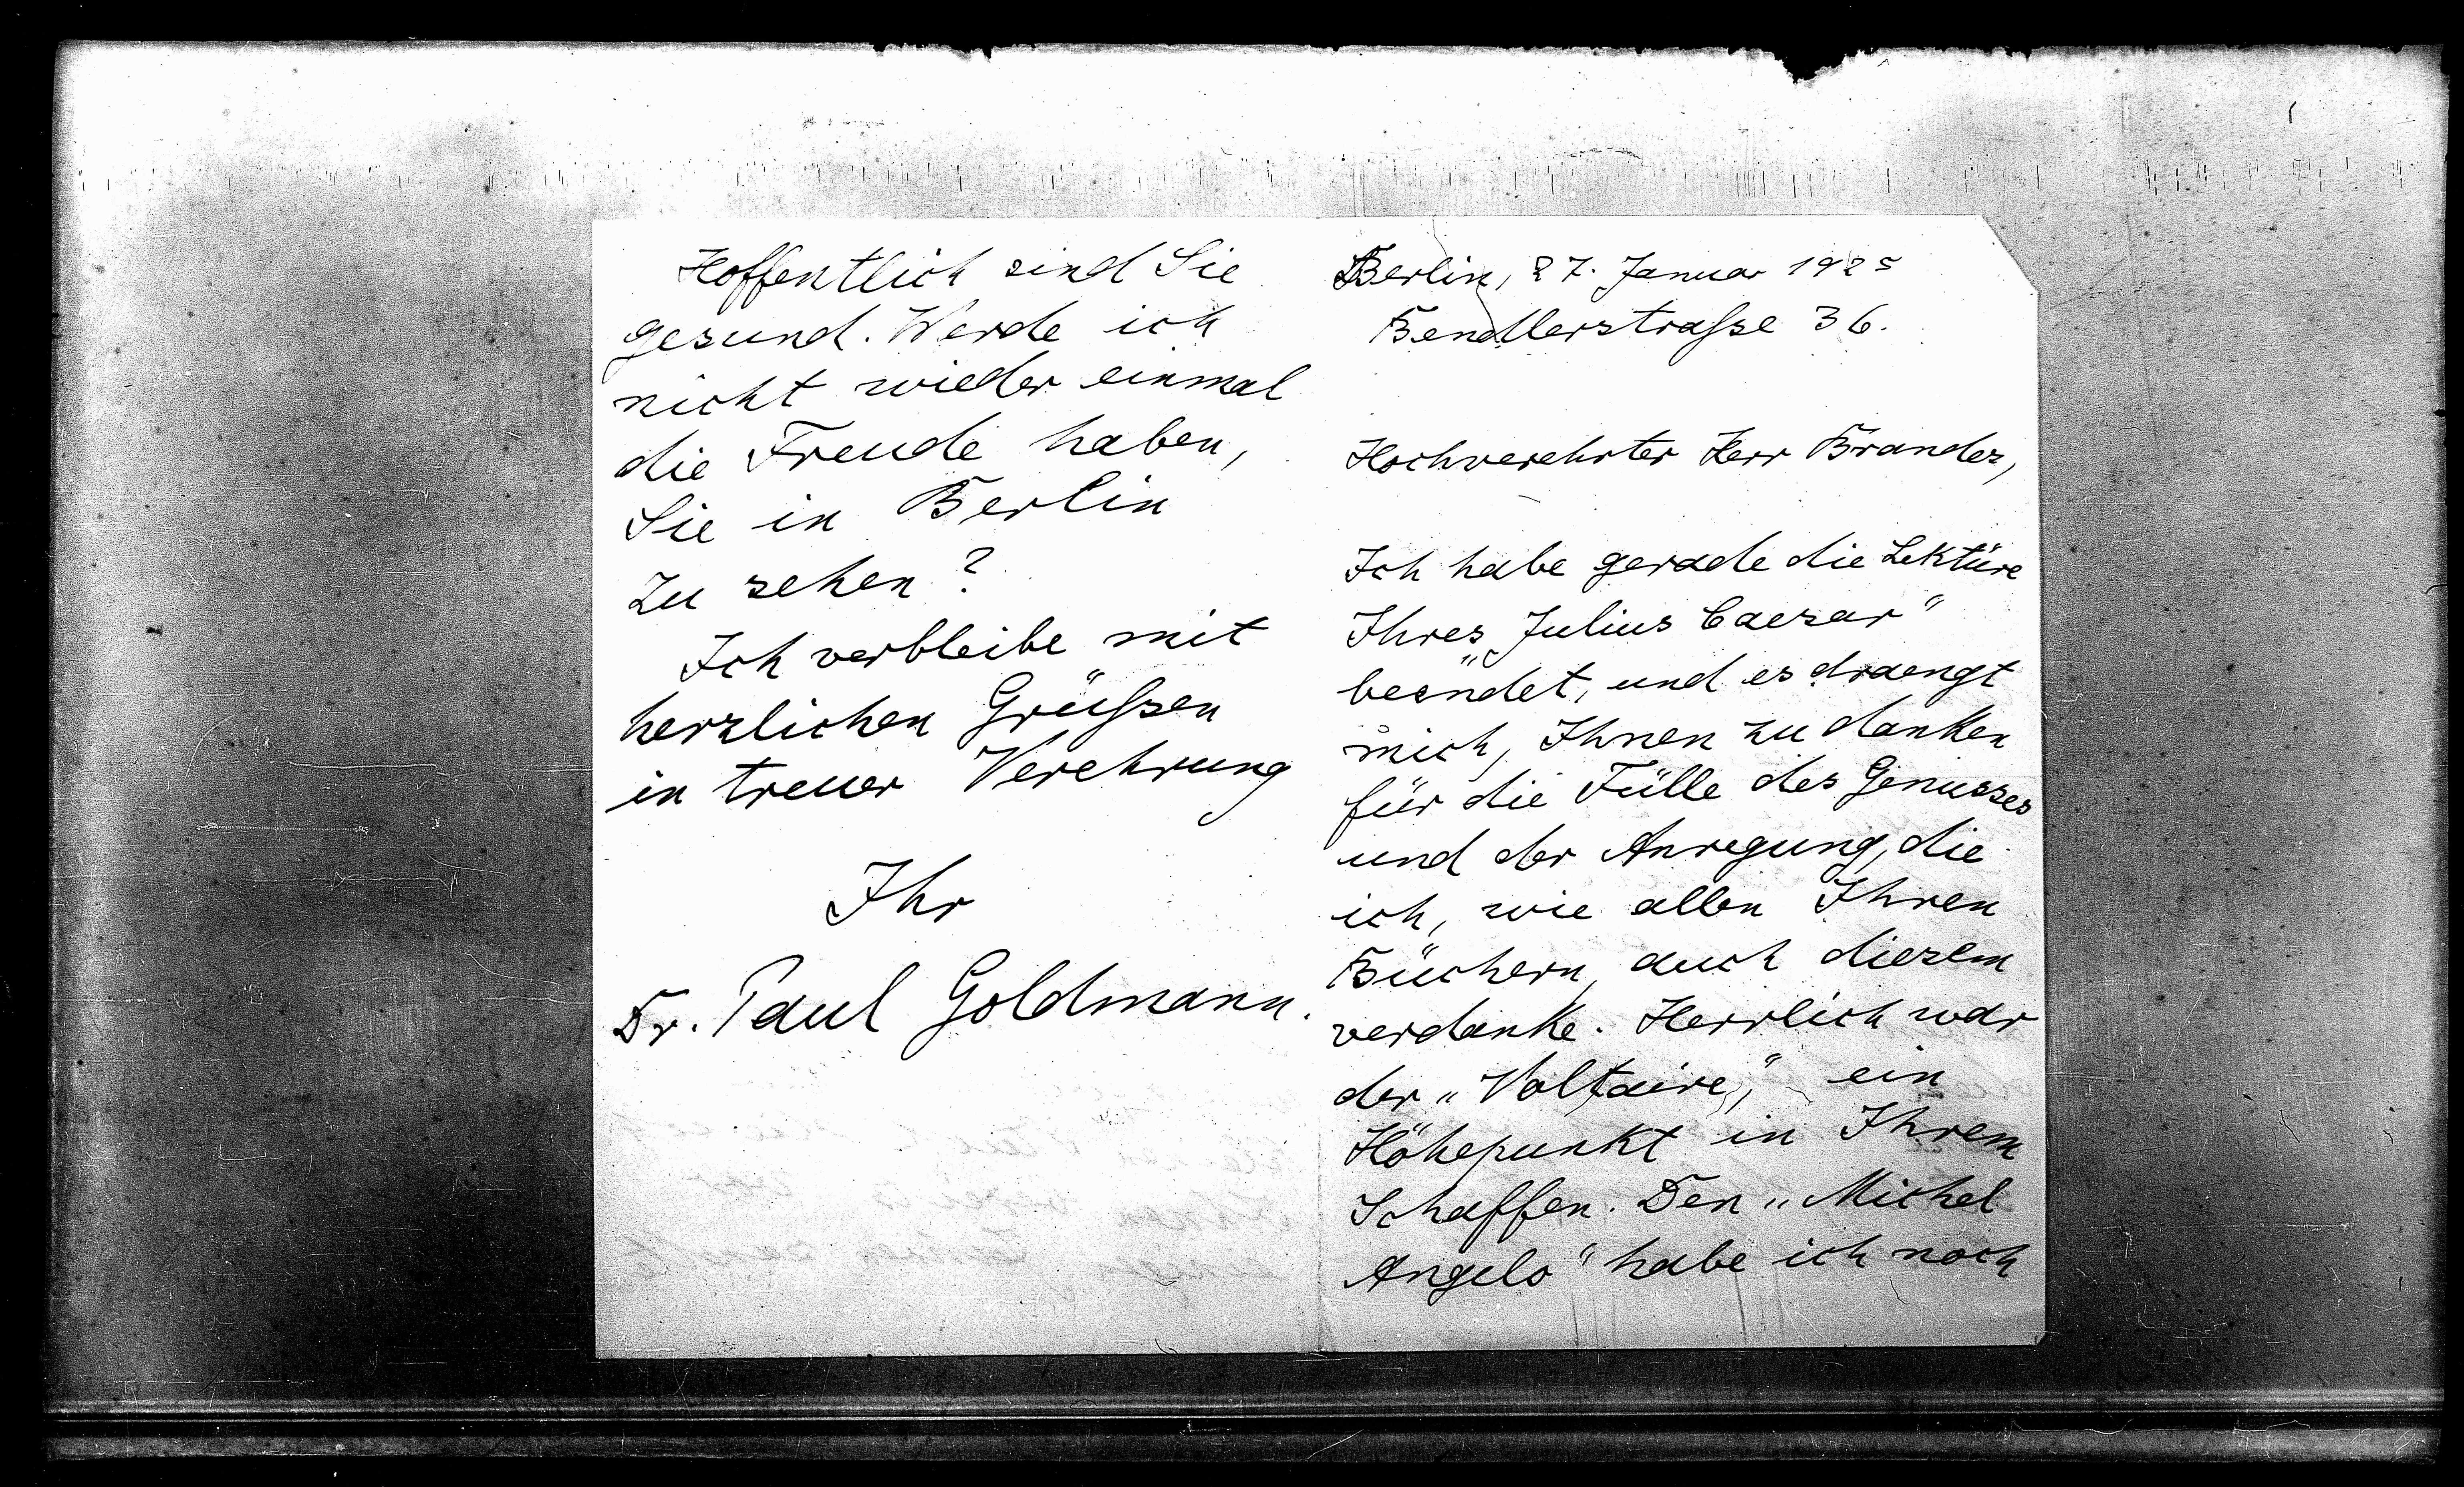 Berlin, 27. Januar 1925
Bendlerstrasse 36.
Hochverehrter Herr Brandes,
Ich habe gerade die Lektüre
Ihres „Julius Caesar“
beendet, und es draengt
mich, Ihnen zu danken
für die Fülle des Genusses
und der Anregung, die
ich, wie allen Ihren
Büchern, auch diesem
verdanke. Herrlich war
der „Voltaire“, ein
Höhepunkt in Ihrem
Schaffen. Den „Michel
Angelo“ habe ich noch
Hoffentlich sind Sie
gesund. Werde ich
nicht wieder einmal
die Freude haben,
Sie in Berlin
zu sehen?
Ich verbleibe mit
herzlichen Grüssen
in treuer Verehrung
Ihr
Dr. Paul Goldmann.